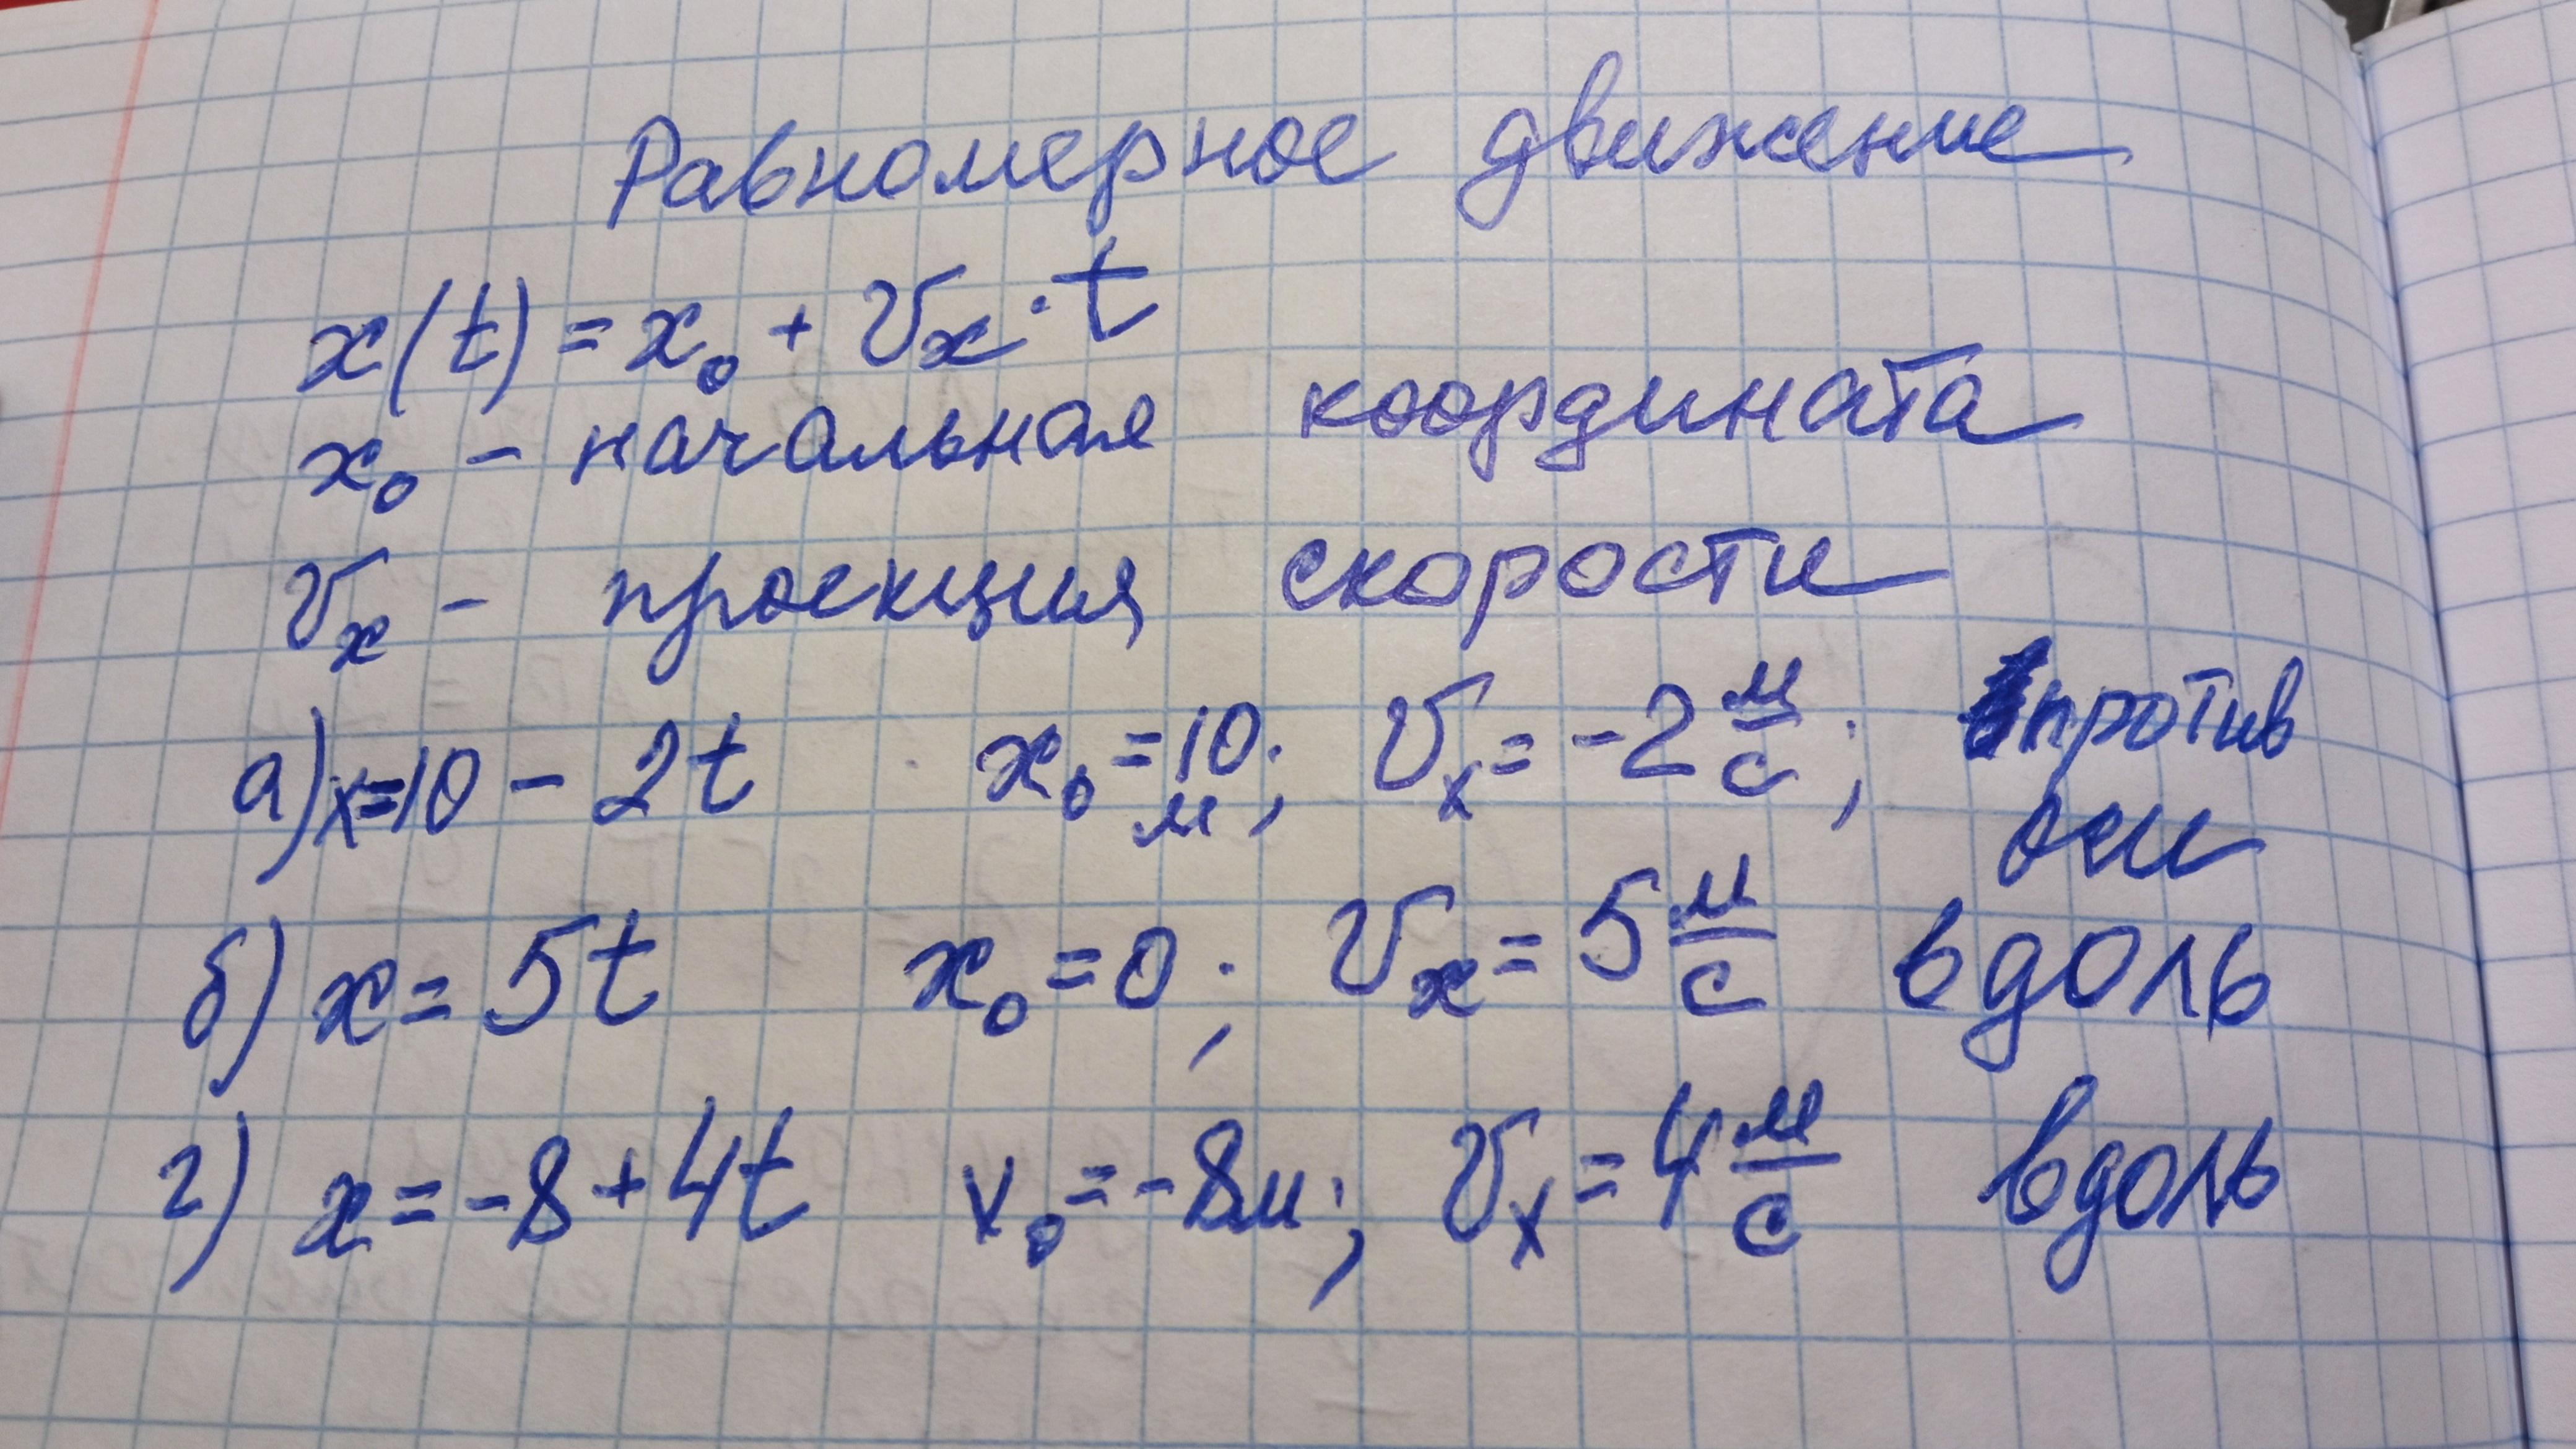 Равномерное движение
x(t) = x₀ + υₓ · t
x₀ - начальная координата
υₓ - проекция скорости
а) x=10 - 2t x₀ = 10 м; υₓ = -2 м/с; против оси
б) x = 5t x₀ = 0; υₓ = 5 м/с вдоль
г) x = -8 + 4t x₀ = -8м; υₓ = 4 м/с вдоль